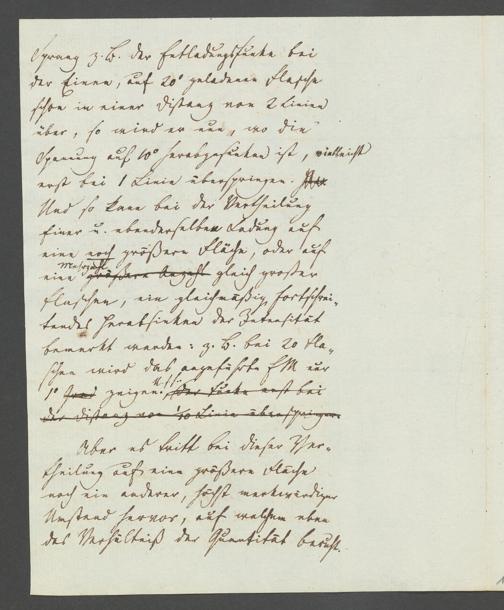 Sprang z. B. der Entladungsfunke bei
der Einen, auf 20° geladenen Flasche
schon in einer Distanz von 2 Linien
über, so wird er nun, wo die
Spannung auf 10° herabgesunken ist, vielleicht
erst bei 1 Linie überspringen.
Und so kann bei der Vertheilung
Einer u. ebenderselben Ladung auf
eine noch größere Fläche, oder auf
eine Mehrzahl größere Anzahl gleich großer
Flaschen, ein gleichmäßig fortschrei-
tendes Herabsinken der Intensität
bemerkt werden: z. B. bei 20 Fla-
schen wird das angeführte EM nur
1° Grad zeigen u.s.f. der Funke erst bei
der Distanz von 1/10 Linie überspringen.
Aber es tritt bei dieser Ver-
theilung auf eine größere Fläche
noch ein anderer, höchst merkwürdiger
Umstand hervor, auf welchem eben
das Verhältniß der Quantität beruht.